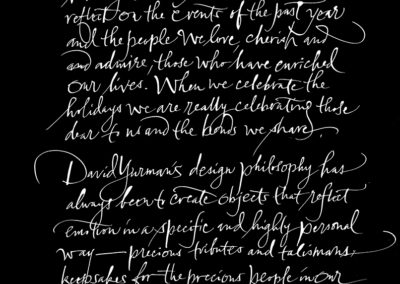 reflect on the events of the past year
and the people we love, cherish and
and admire, those who have enriched
our lives. When we celebrate the
holidays we are really celebrating those
dear to us and the bonds we share
David Yurman's design philosophy has
always been to create objects that reflect
emotion in a specific and highly personal
way—precious tributes and talismans,
keepsakes for the precious people in our